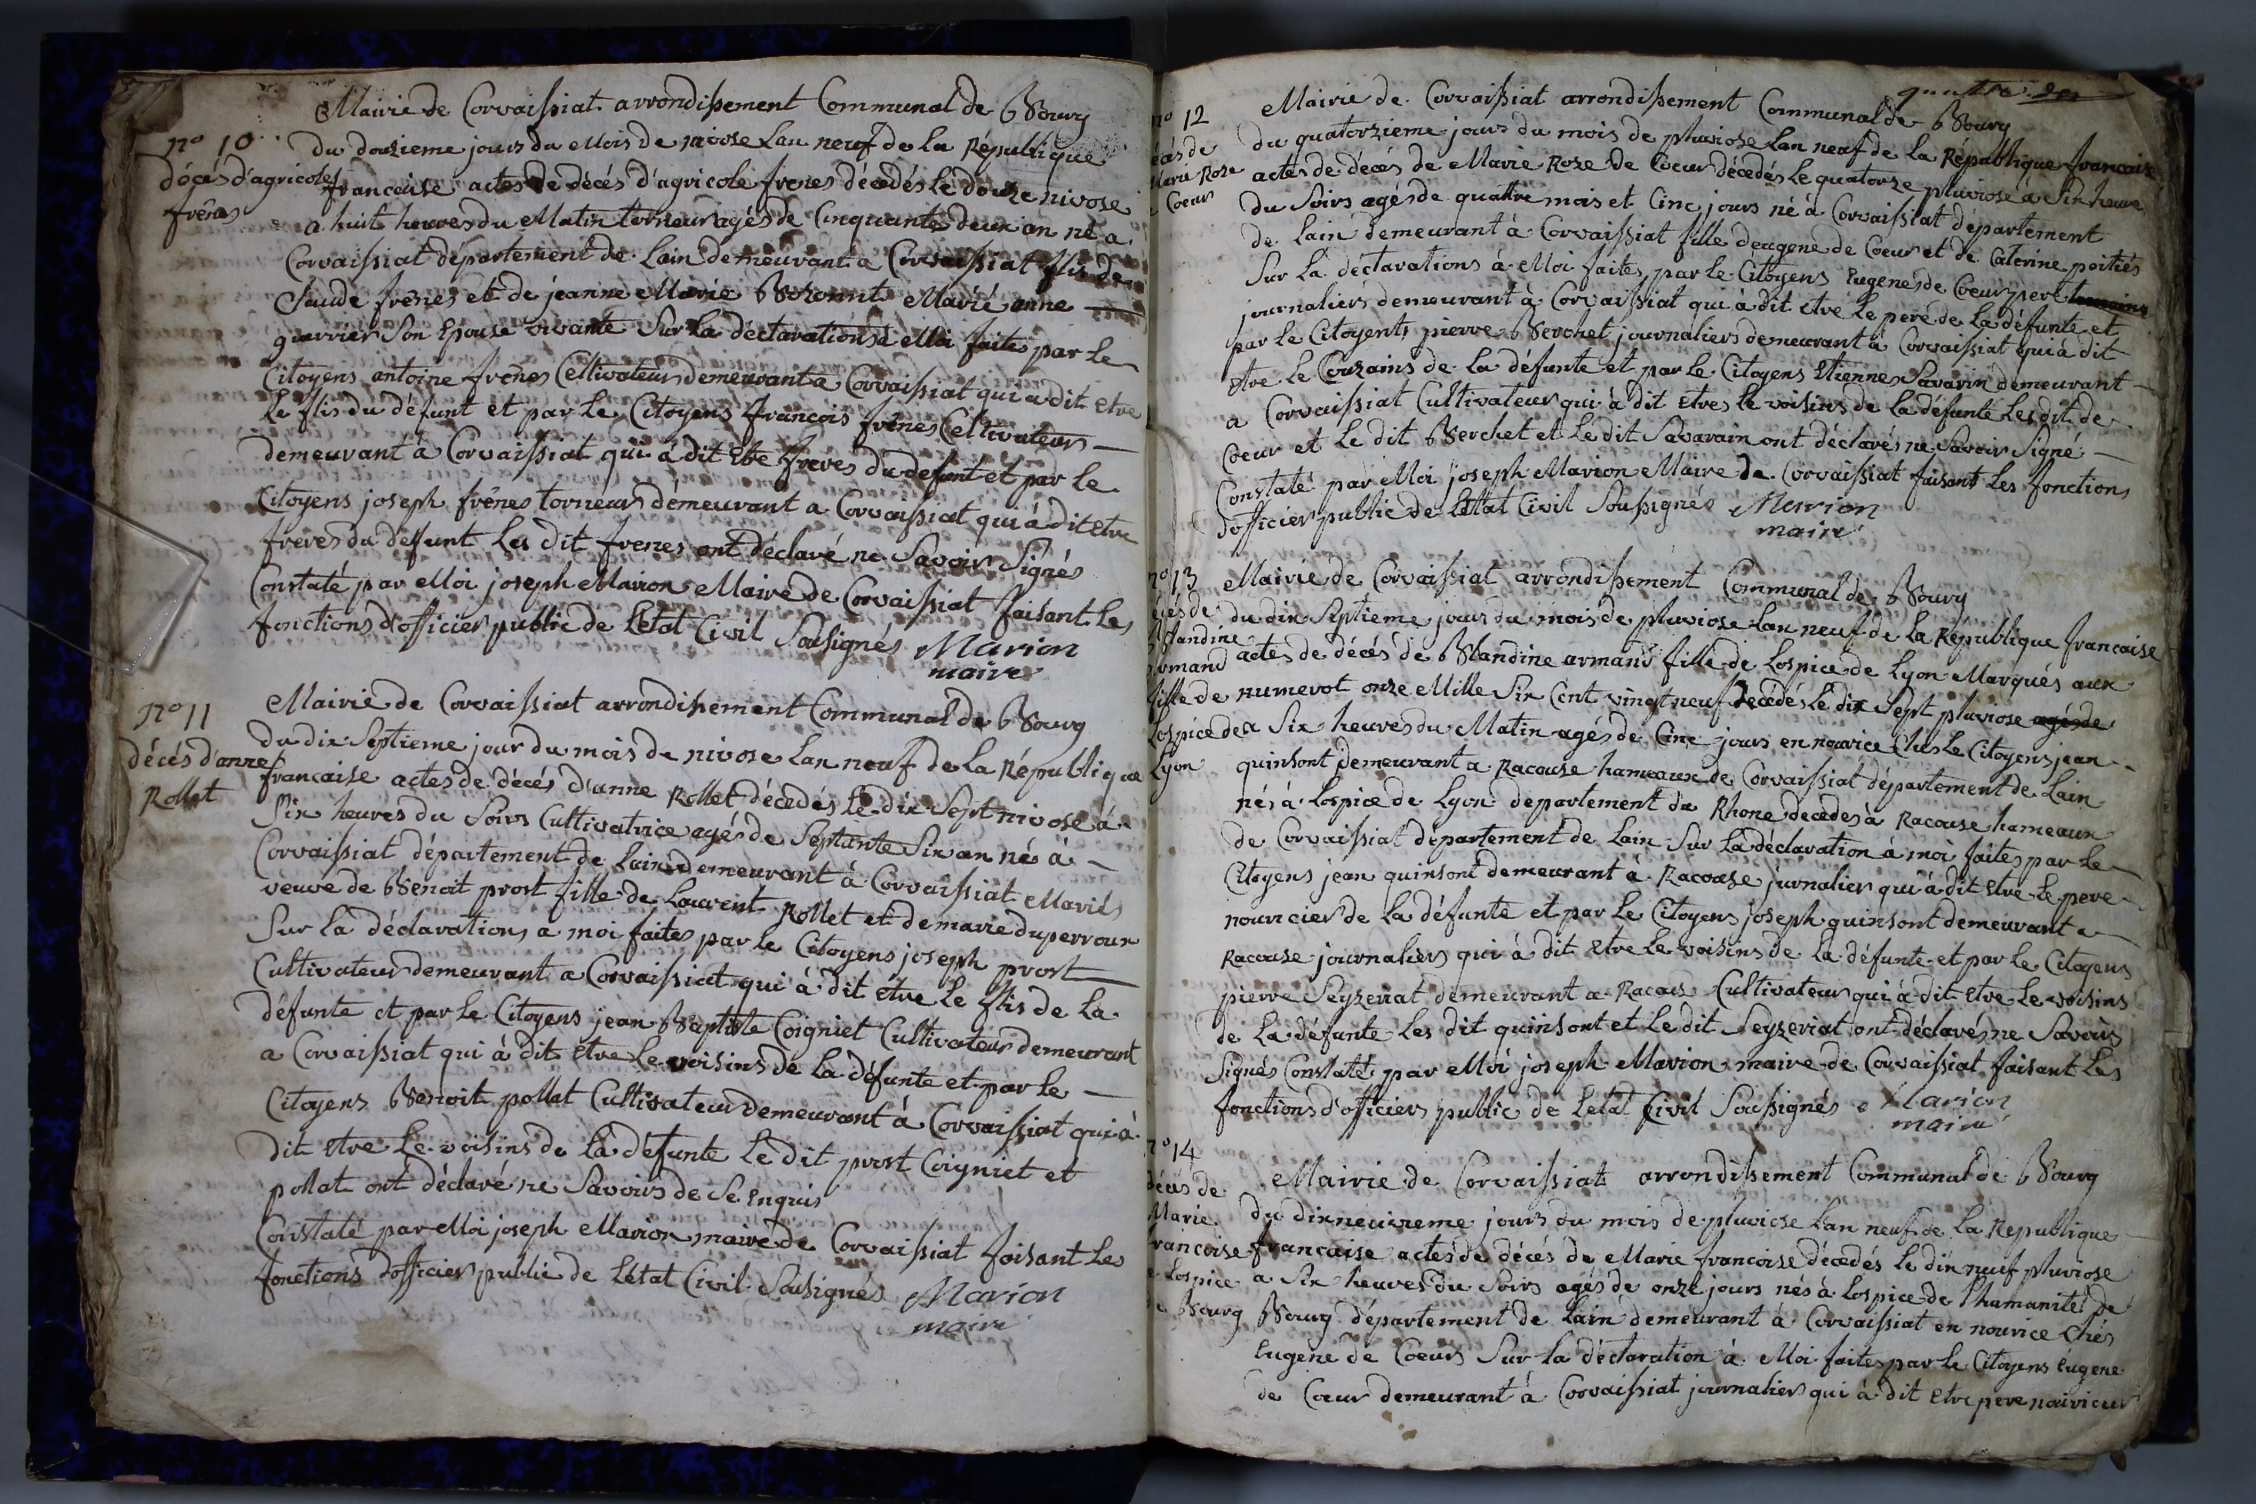 Mairie de Corvaissiat arrondissement Communal de Bourg
n° 10
décés d'agricoles
frênes
du douzieme jours du Mois de nivose Lan neuf de la République
francaise actes de décés d'agricole frenes décédés le douze nivose
a huit heures du Matin torneur agés de Cinquante deux an né a
Corvaissiat département de Lain demeurant a Corvaissiat flis de
Claude frênes et de jeanne Marie Marié anne
guerrier Son Epouse vivante Sur la déclarations à Moi faites par le
Citoyens antoine frênes Celtivateur demeurant a Corvaissiat qui a dit Etre
le flis du défunt et par le Citoyens francois frênes Celtivateurs
demeurant à Corvaissiat qui à dit Ete freres du defunt et par le
Citoyens joseph frênes torneurs démeurant a Corvaissiat qui à dit Etre
freres du défunt Les dit frenes ont déclaré ne Savoir Signés
Constaté par Moi joseph Marion Maire de Corvaissiat faisant Les
fonctions d'officier public de L'Etat Civil Sousignés Marion
maire
n° 11
décés d'anne
Rollet
Mairie de Corvaissiat arrondissement Communal de Bourg
du dix Septieme jour du mois de nivose Lan neuf de la République
francaise actes de décés d'anne Rollet décedés le dix Sept nivose à
Six heures du Soirs Cultivatrice agés de Septante Six an nés à
Corvaissiat département de Lain demeurant à Corvaissiat Mariés
veuve de Benoit prost fille de Laurent Rollet et de marie duperroux
Sur la déclarations a moi faites par le Citoyens joseph prost
Cultivateur demeurant a Corvaissiat qui à dit etre le flis de la
défunte et par le Citoyens jean Baptiste Coigniet Cultivateur demeurant
a Corvaissiat qui à dit Etre le voisins de la défunte et par le
Citoyens Benoit pollat Cultivateur demeurant à Corvaissiat qui à
dit Etre le voisins de la défunte le dit prost Coigniet et
pollat ont déclaré ne Savoirs de Se Enquis
Constaté par Moi joseph Marion maire de Corvaissiat faisant les
fonctions d'officier public de L'état Civil Sousignés Marion
maire
n° 12
Marie Roze
Coeur
Mairie de Corvaissiat arrondissement Communal de Bourg
du quatorzieme jours du mois de pluviose Lan neuf de la République francaise
actes de décés de Marie Roze de Coeur décédés le quatorze pluviose a Six heure
du Soirs agés de quattre mois et Cinc jours né à Corvaissiat département
de Lain demeurant à Corvaissiat fille deugene de Coeur et de Caterine poitiés
Sur la déclarations à Moi faites par le Citoyens Eugenes de Coeur pere
journaliers demeurant à Corvaissiat qui à dit Etre le peré de la défunte et
par le Citoyents pierre Berchet journaliers demeurant à Corvaissiat qui à dit
Etre le Couzains de la défunte et par le Citoyens Etiennes Savarin demeurant
a Corvaissiat Cultivateur qui à dit Etres le voisins de la défunte Les dit de
Coeur et Le dit Berchet et Le dit Savarain ont déclarés ne Savoir Signé
Constaté par Moi joseph Marion Maire de Corvaissiat faisant Les fonctions
d'officier public de L'Etat Civil Sousignés Marion
maire
n° 13
Blandine
armand
fille de
Lospice de
Lyon
Mairie de Corvaissiat arrondissement Communal de Bourg
du dix Septieme jours du mois de pluviose Lan neuf de la République francaise
actes de décés de Blandine armand fille de Lospice de Lyon Marqués aux
numerot onze Mille Six Cent vingt neuf decédés le dix Sept pluviose agés de
a Six heures du Matin agés de Cinc jours en nourice Chés le Citoyens jean
quinsont demeurant a Racouse hameaux de Corvaissiat département de Lain
nés à Lospice de Lyon departement du Rhone decédés à Racouse hameaux
de Corvaissiat département de Lain Sur la déclaration à moi faites par le
Citoyens jean quinsont demeurant à Racouse jurnalier qui à dit Etre le pere
nouricier de la défunte et par le Citoyens joseph quinsont demeurant a
Racouse journaliers qui à dit Etre le voisins de la défunte et par le Citoyens
pierre Seyzeriat demeurant a Racous Cultivateur qui à dit Etre le voisins
de la défunte Les dit quinsont et Le dit Seyzeriat ont déclarés ne Savoirs
Signés Constaté par Moi joseph Marion maire de Corvaissiat faisant Les
fonctions d'officiers public de Letat Civil Soussignés Marion
maire
n° 14
décés de
Marie
francoise
Lospice
de Bourg
Mairie de Corvaissiat arrondissement Communal de Bourg
du dixneuvieme jours du mois de pluviose Lan neuf de la Republique
francaise actes de décés de Marie francoise décedés le dix neuf pluviose
a Six heures du Soirs agés de onze jours nés à Lospice de l'humanité de
Bourg département de Lain demeurant à Corvaissiat en nourice Chés
Eugene de Coeurs Sur la déclaration à Moi faites par le Citoyens Eugene
de Coeur demeurant à Corvaissiat journaliers qui à dit Etre pere nouricier